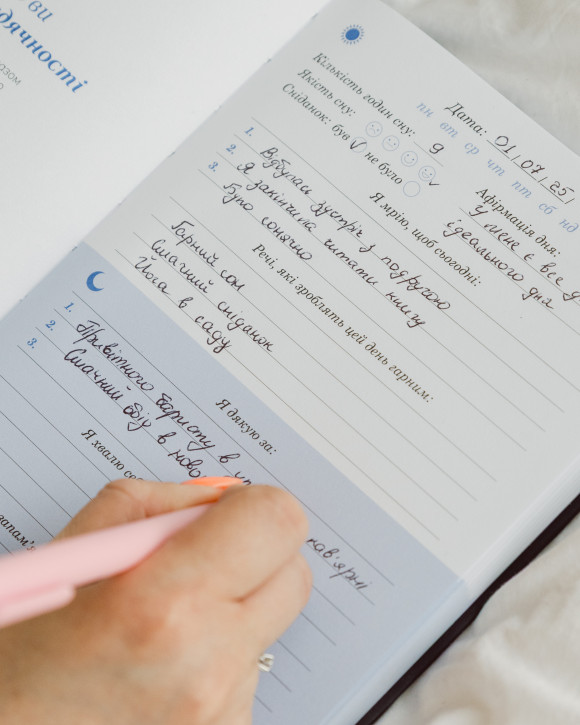 ви
дячності
азом
Дата: 01/07/25
пн вт ср чт пт сб нд
Кількість годин сну: 9
Якість сну:
Сніданок: був V не було
Афірмація дня:
У мене є все д
ідеального дня
Я мрію, щоб сьогодні:
1. Відбулась зустріч з подругою
2. Я закінчила читати книгу
3. Було сонячно
Речі, які зроблять цей день гарним:
Гарний сон
Смачний сніданок
Йога в саду
Я дякую за:
1. Привітного баристу в
кав'ярні
2. Смачний обід в ново
3.
Я хвалю се
запам'